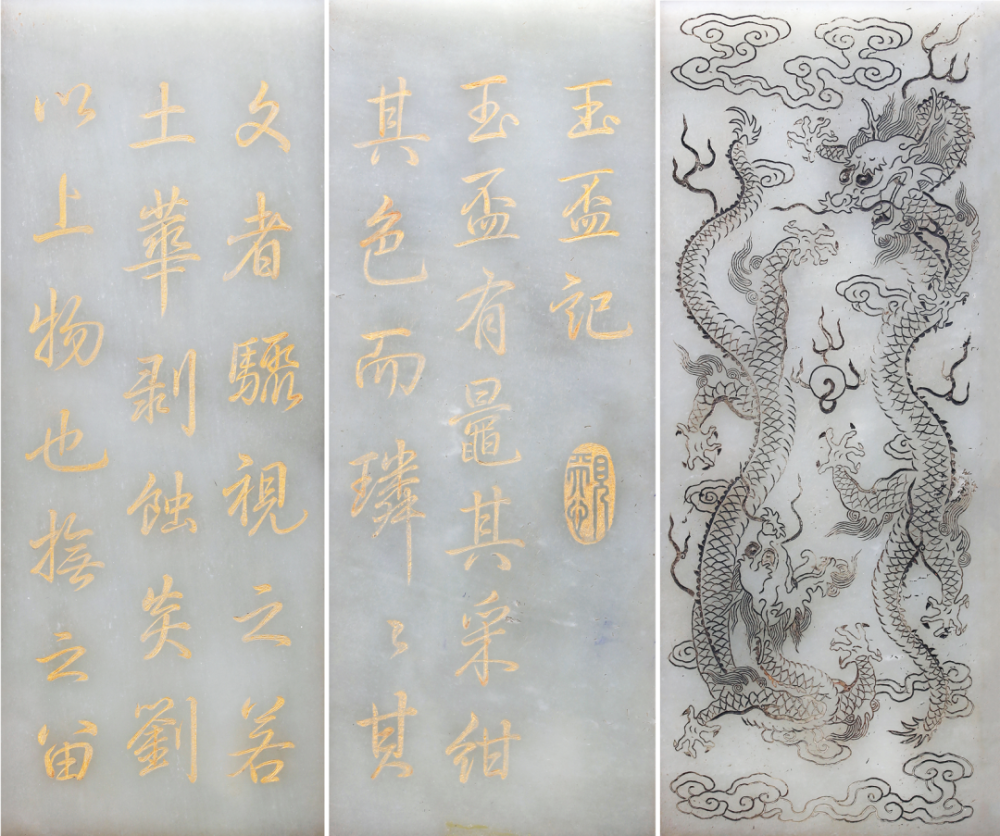 玉盃記
玉盃有鼂其采紺
其色而璘〻其
文者驟視之若
土華剝蝕炎劉
以上物也撫之留